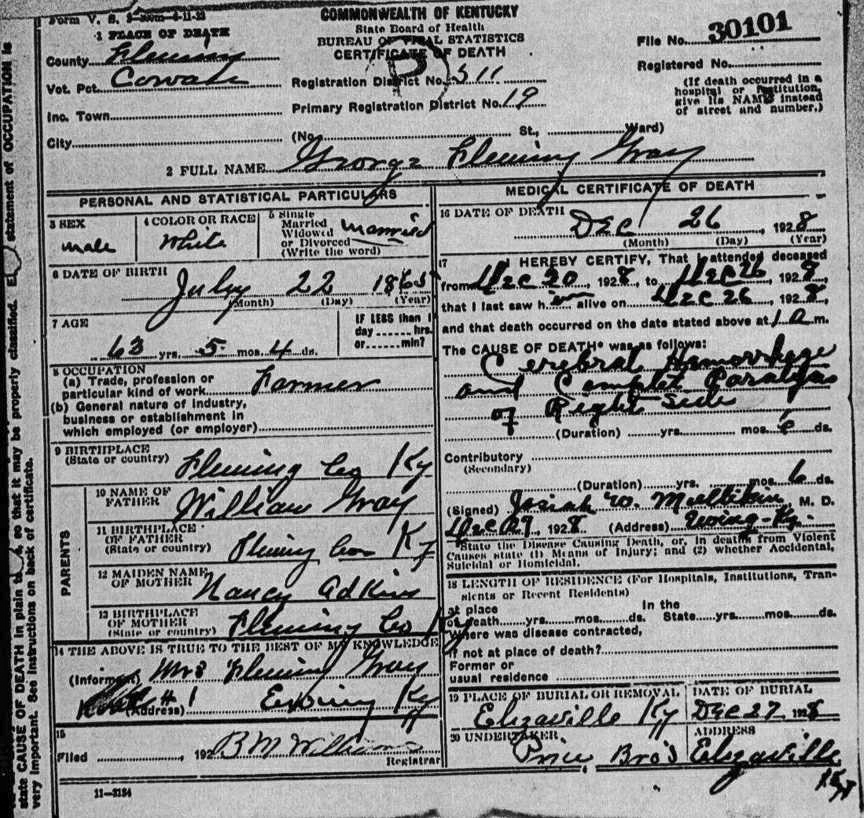 Form V. S.
COMMONWEALTH OF KENTUCKY
State Board of Health
BUREAU OF VITAL STATISTICS
CERTIFICATE OF DEATH
1 PLACE OF DEATH
County Fleming
Vot. Pct. Cowan
Inc. Town
City
Registration District No. 311
Primary Registration District No. 19
(No. St., Ward)
File No. 30101
Registered No.
(If death occurred in a
hospital or institution,
give its NAME instead
of street and number.)
2 FULL NAME George Fleming Gray
PERSONAL AND STATISTICAL PARTICULARS
3 SEX male
4 COLOR OR RACE White
5 Single
Married
Widowed
or Divorced
(Write the word) married
6 DATE OF BIRTH
July 22 1865
(Month) (Day) (Year)
7 AGE
63 yrs. 5 mos. 4 ds.
IF LESS than 1
day ...... hrs.
or ...... min?
8 OCCUPATION
(a) Trade, profession or
particular kind of work Farmer
(b) General nature of industry,
business or establishment in
which employed (or employer)
9 BIRTHPLACE
(State or country) Fleming Co Ky
PARENTS
10 NAME OF
FATHER William Gray
11 BIRTHPLACE
OF FATHER
(State or country) Fleming Co Ky
12 MAIDEN NAME
OF MOTHER Nancy Adkins
13 BIRTHPLACE
OF MOTHER
(State or country) Fleming Co Ky
14 THE ABOVE IS TRUE TO THE BEST OF MY KNOWLEDGE
(Informant) Mrs Fleming Gray
(Address) # 1 Ewing Ky
15
Filed , 192 B M Williams
Registrar
11-3184
MEDICAL CERTIFICATE OF DEATH
16 DATE OF DEATH Dec 26 , 1928
(Month) (Day) (Year)
17 I HEREBY CERTIFY, That I attended deceased
from Dec 20 , 1928, to Dec 26 , 1928,
that I last saw him alive on Dec 26 , 1928,
and that death occurred on the date stated above at 1 a m.
The CAUSE OF DEATH* was as follows:
Cerebral Hemorrhage
and Complet Paralysis
of Right Side
(Duration) yrs. mos. 6 ds.
Contributory
(Secondary)
(Duration) yrs. mos. 6 ds.
(Signed) Josiah W. Mullikin, M. D.
Dec 27, 1928 (Address) Ewing-Ky.
*State the Disease Causing Death, or, in deaths from Violent
Causes state (1) Means of Injury; and (2) whether Accidental,
Suicidal or Homicidal.
18 LENGTH OF RESIDENCE (For Hospitals, Institutions, Tran-
sients or Recent Residents)
At place In the
of death yrs. mos. ds. State yrs. mos. ds.
Where was disease contracted,
if not at place of death?
Former or
usual residence
19 PLACE OF BURIAL OR REMOVAL
Elizaville Ky
DATE OF BURIAL
Dec 27 1928
20 UNDERTAKER
Price Bro's
ADDRESS
Elizaville
Ky
statement of OCCUPATION is
so that it may be properly classified.
state CAUSE OF DEATH in plain
very important. See instructions on back of certificate.